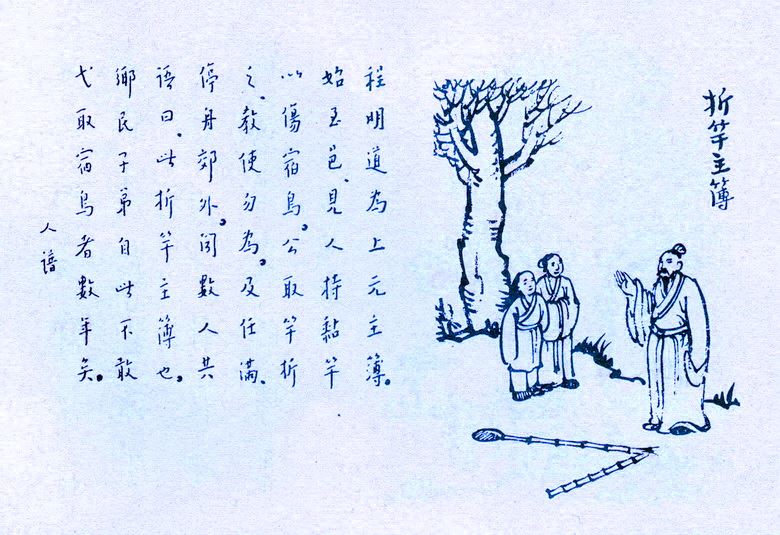 折竿主簿
程明道為上元主簿。
始至邑、見人持黏竿
以傷宿鳥。公取竿折
之、教使勿為。及任滿、
停舟郊外。聞數人共
語曰、此折竿主簿也。
鄉民子弟自此不敢
弋取宿鳥者數年矣。
人譜